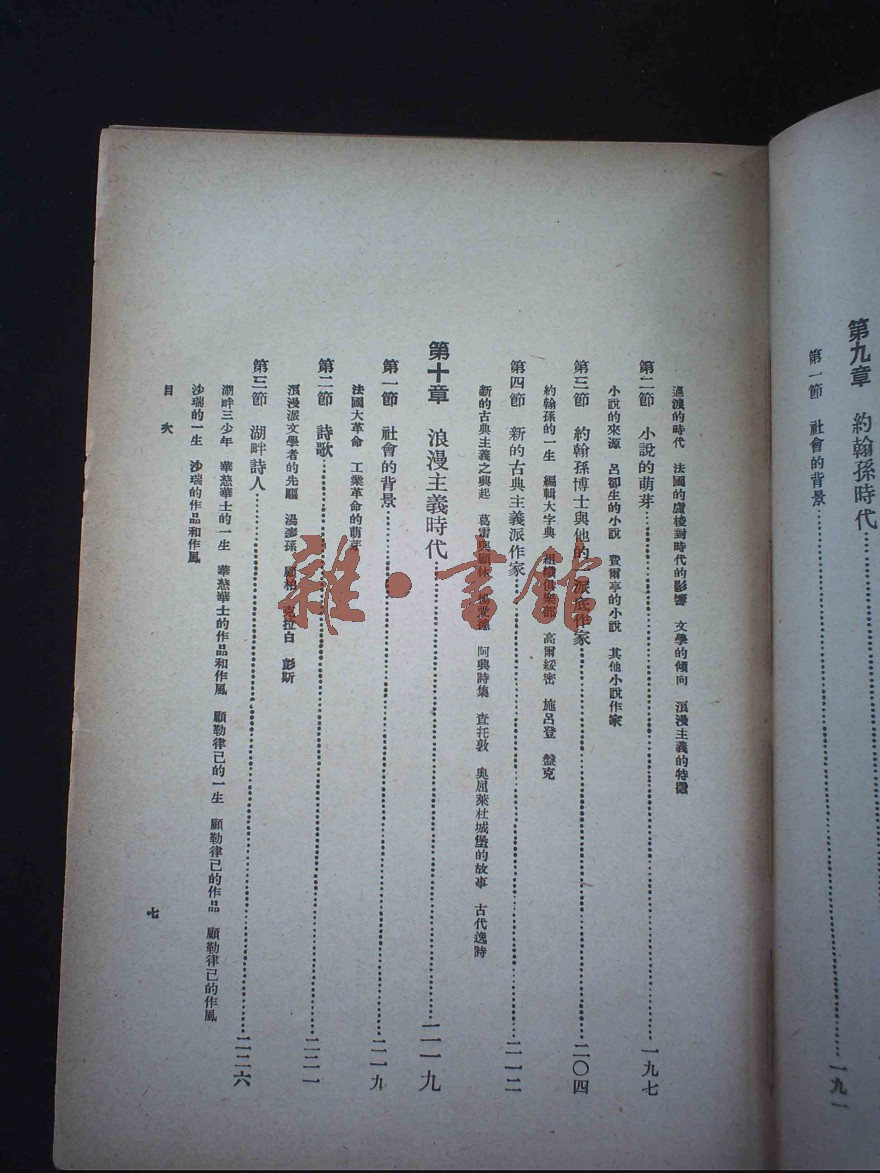 第九章 約翰孫時代……一九一
第一節 社會的背景……一九一
過渡的時代 法國的盧梭對時代的影響 文學的傾向 浪漫主義的特徵
第二節 小說的萌芽……一九七
小說的來源 呂卻生的小說 費爾亭的小說 其他小說作家
第三節 約翰孫博士與他的一派底作家……二〇四
約翰孫的一生 編輯大字典 高爾綏密 施呂登 盤克
第四節 新的古典主義派作家……二一二
新的古典主義之興起 葛雷與顧林 阿興詩集 查托敦 奧屈萊杜城堡的故事 古代逸詩
第十章 浪漫主義時代……二一九
第一節 社會的背景……二一九
法國大革命 工業革命的萌芽
第二節 詩歌……二二一
浪漫派文學者的先驅 湯麥孫 顧柏 克拉白 彭斯
第三節 湖畔詩人……二二六
湖畔三少年 華慈華士的一生 華慈華士的作品和作風 顧勒律己的一生 顧勒律己的作品 顧勒律己的作風
沙瑞的一生 沙瑞的作品和作風
目次
七
雜·書館